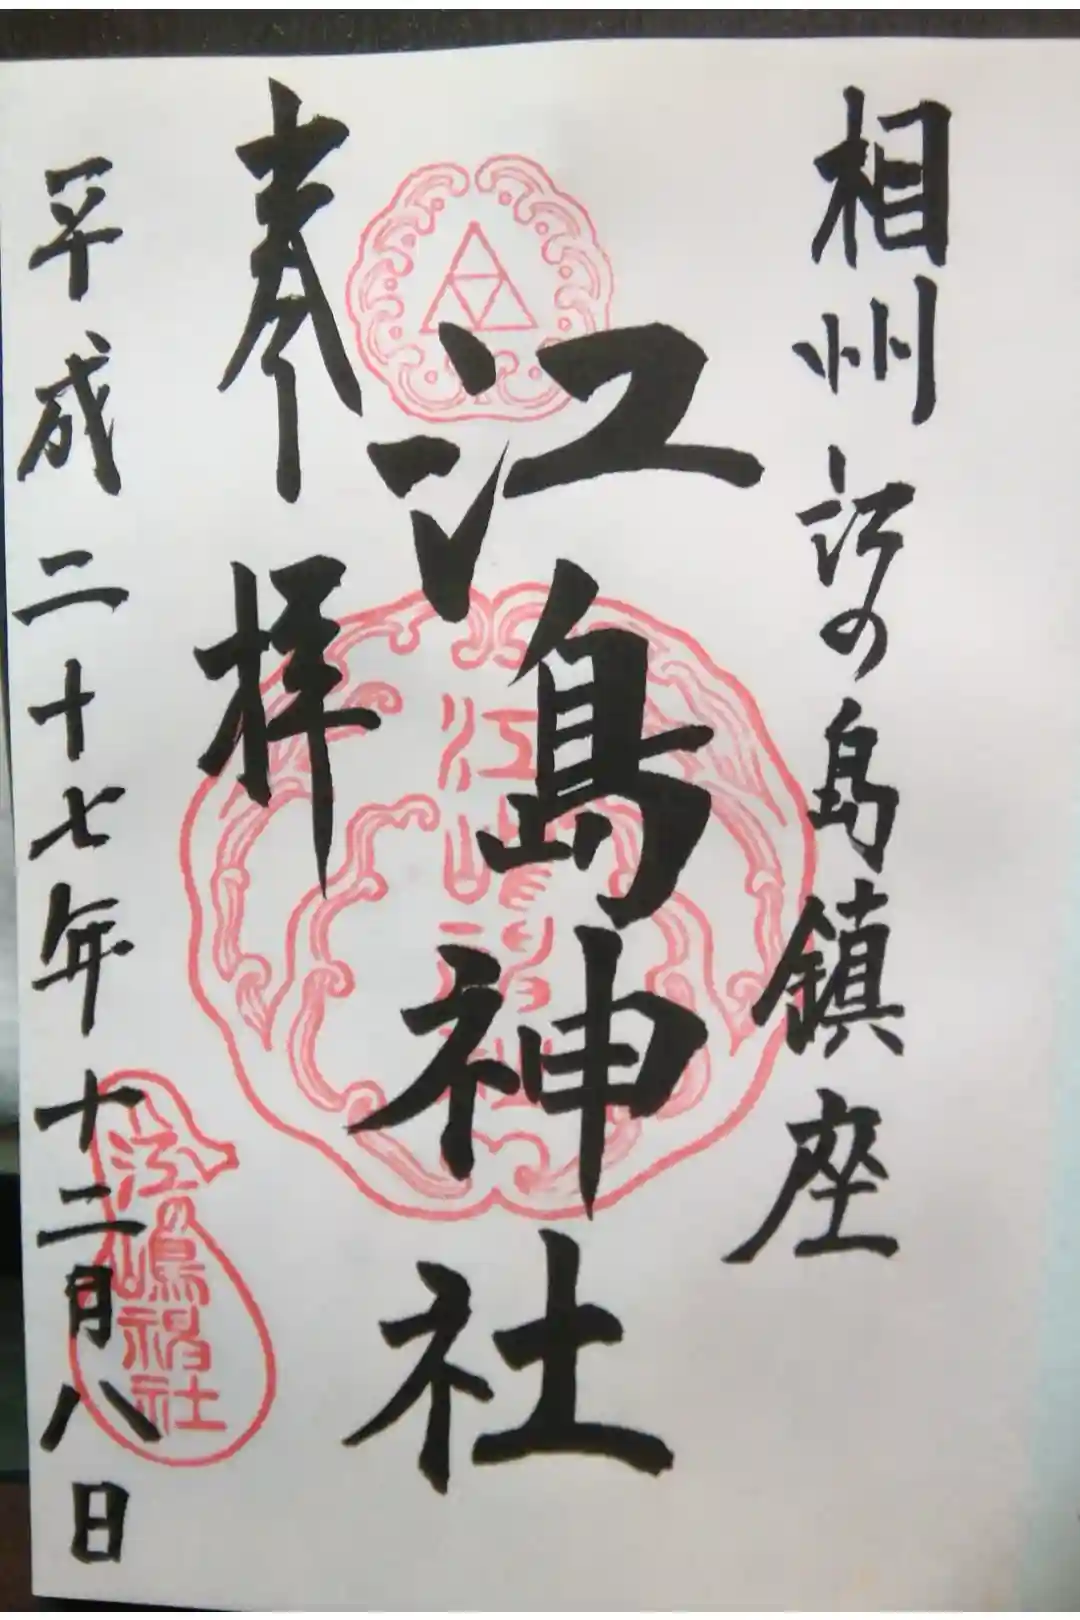 相州江の島鎮座
江島神社
奉拝
平成二十七年十二月八日
江島神社
江の嶋神社